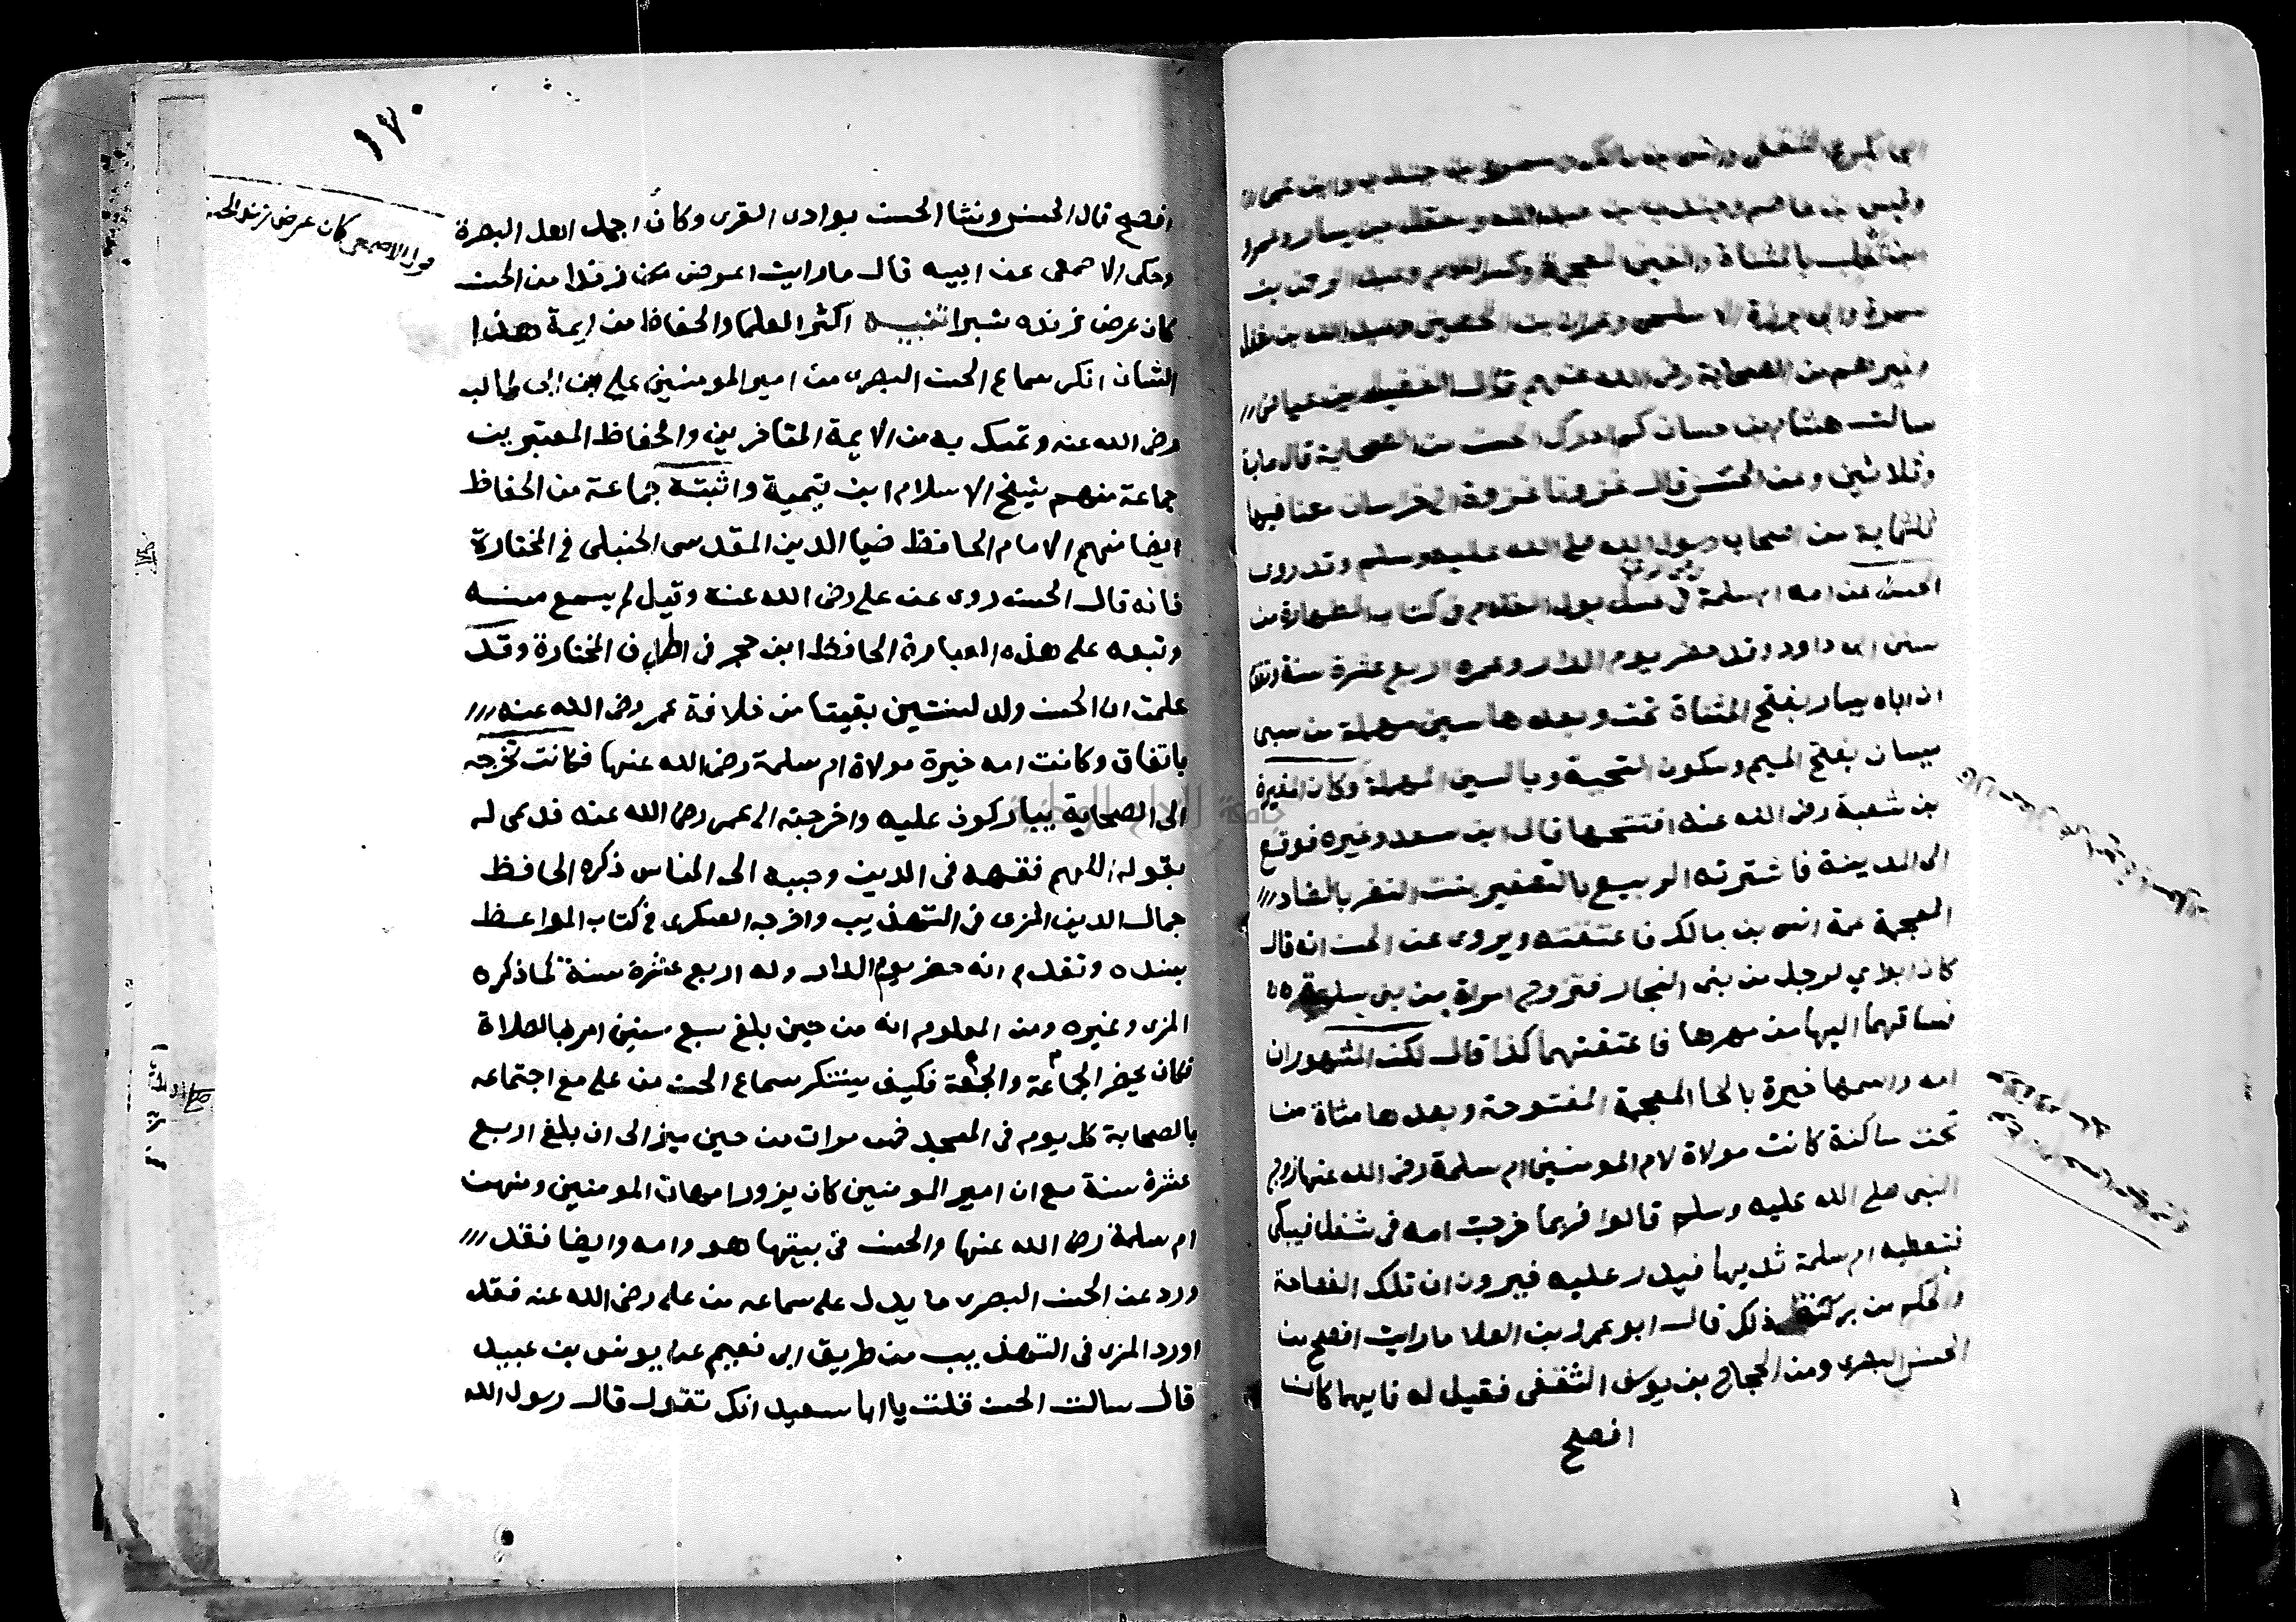 ابى بكرة الثقفى وانس بن مالك وسمرة بن جندب وابن عمر
وقيس بن عاصم وجندب بن عبد الله ومعقل بن يسار وعمرو
ابن تغلب بالمثناة والغين المعجمة وكسر اللام وعبد الرحمن بن
سمرة وابى برزة الاسلمى وعمران بن الحصين وعبد الله بن مغفل
وغيرهم من الصحابة رضى الله عنهم قال الفضيل بن عياض
سالت هشام بن حسان كم ادرك الحسن من الصحابة قال ماية
وثلاثين وعن الحسن قال غزونا غزوة الى خراسان معنا فيها
ثلثماية من اصحاب رسول الله صلى الله عليه وسلم وقد روى
الحسن عن امه ام سلمة فى غسل بول الغلام فى كتاب الطهارة من
سنن ابى داود وقد حضر يوم الدار وعمره اربع عشرة سنة
ان اباه يسار بفتح المثناة تحت وبعدها سين مهملة من سبى
ميسان بفتح الميم وسكون التحية وبالسين المهملة وكان المغيرة
بن شعبة رضى الله عنه افتتحها قال ابن سعد وغيره فوقع
الى المدينة فاشترته الربيع بالتصغير بنت النضر بالضاد
المعجمة عمة انس بن مالك فاعتقته ويروى عن الحسن انه قال
كان ابواي لرجل من بنى النجار فتزوج امراة من بنى سلمة
فساقهما اليها من مهرها فاعتقتهما كذا قال لكن المشهور ان
امه واسمها خيرة بالخا المعجمة المفتوحة وبعدها مثناة من
تحت ساكنة كانت مولاة لام المومنين ام سلمة رضى الله عنها زوج
النبى صلى الله عليه وسلم قالوا فربما خرجت امه فى شغل فيبكى
فتعطيه ام سلمة ثديها فيدر عليه فيرون ان تلك الفصاحة
والحكم من بركة ذلك قال ابو عمرو بن العلا ما رايت افصح من
الحسن البصرى ومن الحجاج بن يوسف الثقفى فقيل له فايهما كان
افصح
١٧٠
افصح قال الحسن ونشا الحسن بوادى القرى وكان اجمل اهل البصرة
وحكى الاصمعى عن ابيه قال ما رايت اعرض من زندا من الحسن
كان عرض زنده شبرا تنبيه اكثر العلما والحفاظ من ايمة هذا
الشان انكر سماع الحسن البصرى من امير المومنين على بن ابى طالب
رضى الله عنه وتمسك به من الايمة المتاخرين والحفاظ المعتبرين
جماعة منهم شيخ الاسلام ابن تيمية واثبته جماعة من الحفاظ
ايضا منهم الامام الحافظ ضيا الدين المقدسى الحنبلى فى المختارة
فانه قال الحسن روى عن على رضى الله عنه وقيل لم يسمع منه
وتبعه على هذه العبارة الحافظ ابن حجر فى اطراف المختارة وقد
علمت ان الحسن ولد لسنتين بقيتا من خلافة عمر رضى الله عنه
باتفاق وكانت امه خيرة مولاة ام سلمة رضى الله عنها فكانت تخرجه
الى الصحابة يباركون عليه واخرجته الى عمر رضى الله عنه فدعى له
بقوله اللهم فقهه فى الدين وحببه الى الناس ذكره الحافظ
جمال الدين المزى فى التهذيب واخرجه العسكرى فى كتاب المواعظ
بسنده وتقدم انه حضر يوم الدار وله اربع عشرة سنة كما ذكره
المزى وغيره ومن المعلوم انه من حين بلغ سبع سنين امر بالصلاة
فكان يحضر الجماعة والجمعة فكيف يستنكر سماع الحسن من على مع اجتماعه
بالصحابة كل يوم فى المسجد خمس مرات من حين ميز الى ان بلغ اربع
عشرة سنة مع ان امير المومنين كان يزور امهات المومنين ومنهن
ام سلمة رضى الله عنها والحسن فى بيتها هو وامه وايضا فقد
ورد عن الحسن البصرى ما يدل على سماعه من على رضى الله عنه فقد
اورد المزى فى التهذيب من طريق ابى نعيم عن يونس بن عبيد
قال سالت الحسن قلت يا ابا سعيد انك تقول قال رسول الله
كان عرض زند الحسن
جامعة النجاح الوطنية